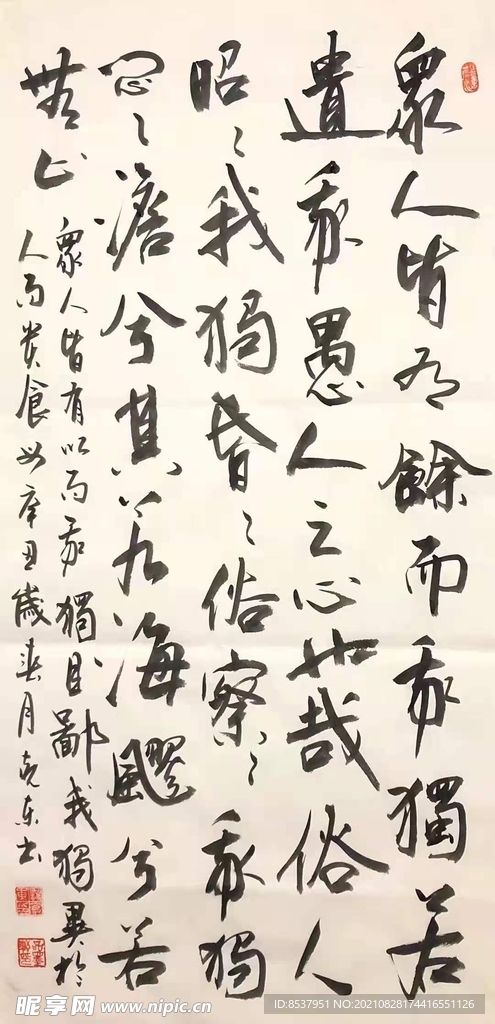 眾人皆有餘而我獨若
遺我愚人之心也哉俗人
昭〻我獨昏〻俗察〻我獨
悶〻澹兮其若海飂兮若
無止
眾人皆有以而我獨且鄙我獨異於
人而貴食母辛丑歲春月克東书
昵享网 www.nipic.cn
ID:8537951 NO:20210828174416551126